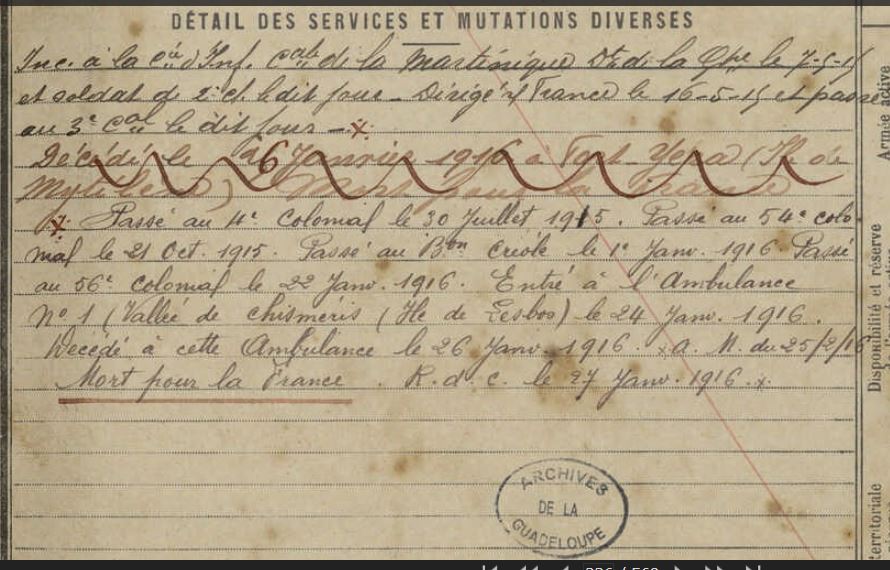 DÉTAIL DES SERVICES ET MUTATIONS DIVERSES
Inc. à la Cie d'Inf. Cale de la Martinique Dt de la Gpe le 7-5-15
et soldat de 2e cl. le dit jour _ Dirigé s/ France le 16-5-15 et passé
au 3e Cal le dit jour _ x
Décédé le 26 Janvier 1916 à Port-Yera (Ile de
Mytilène) Mort pour la France
x Passé au 4e Colonial le 30 Juillet 1915. Passé au 54e colo
nial le 21 Oct. 1915. Passé au Bon créole le 1e Janv. 1916 Passé
au 56e colonial le 22 Janv. 1916. Entré à l'Ambulance
No 1 (Vallée de Chisméris (Ile de Lesbos) le 24 Janv. 1916.
Décédé à cette Ambulance le 26 Janv. 1916. a. M. du 25/2/16
Mort pour la France. R. d. c. le 27 Janv. 1916. x
Armée active
Disponibilité et réserve
territoriale
ARCHIVES
DE LA
GUADELOUPE